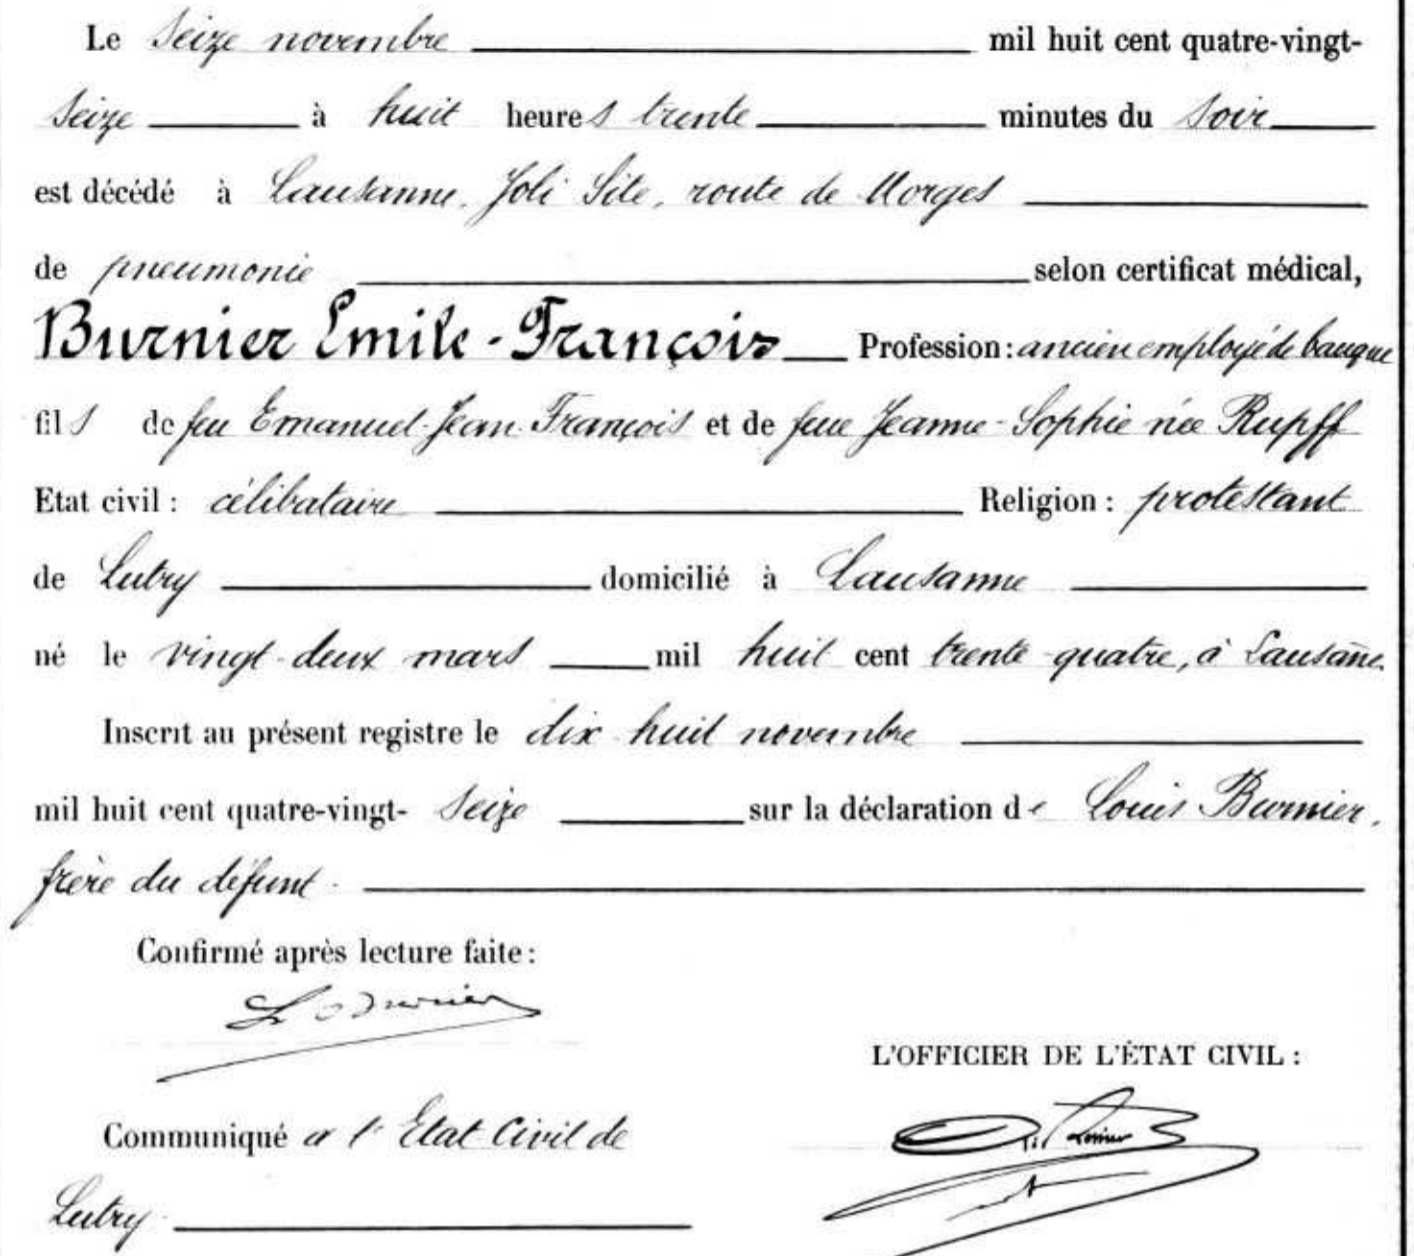 Le seize novembre mil huit cent quatre-vingt-
seize à huit heures trente minutes du soir
est décédé à Lausanne, Joli Site, route de Morges
de pneumonie selon certificat médical,
Burnier Emile-François Profession: ancien employé de banque
fils de feu Emanuel-Jean-François et de feue Jeanne-Sophie née Rupff
Etat civil: célibataire Religion: protestant
de Lutry domicilié à Lausanne
né le vingt-deux mars mil huit cent trente-quatre, à Lausanne.
Inscrit au présent registre le dix-huit novembre
mil huit cent quatre-vingt-seize sur la déclaration de Louis Burnier,
frère du défunt.
Confirmé après lecture faite:
L'OFFICIER DE L'ÉTAT CIVIL:
Communiqué à l'Etat Civil de
Lutry.